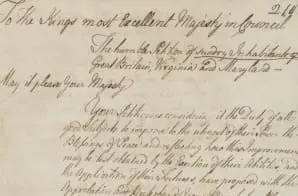 219
To the King's most Excellent Majesty in Council
The humble Petition of sundry Inhabitants of
Great Britain, Virginia and Maryland —
May it please Your Majesty
Your Petitioners considering it the Duty of all
good Subjects to improve to the utmost of their Power the
Blessings of Peace and reflecting how this Improvement
may be best obtained by the Exertion of their Abilities and
the Application of their Fortunes, have proposed with the
Approbation